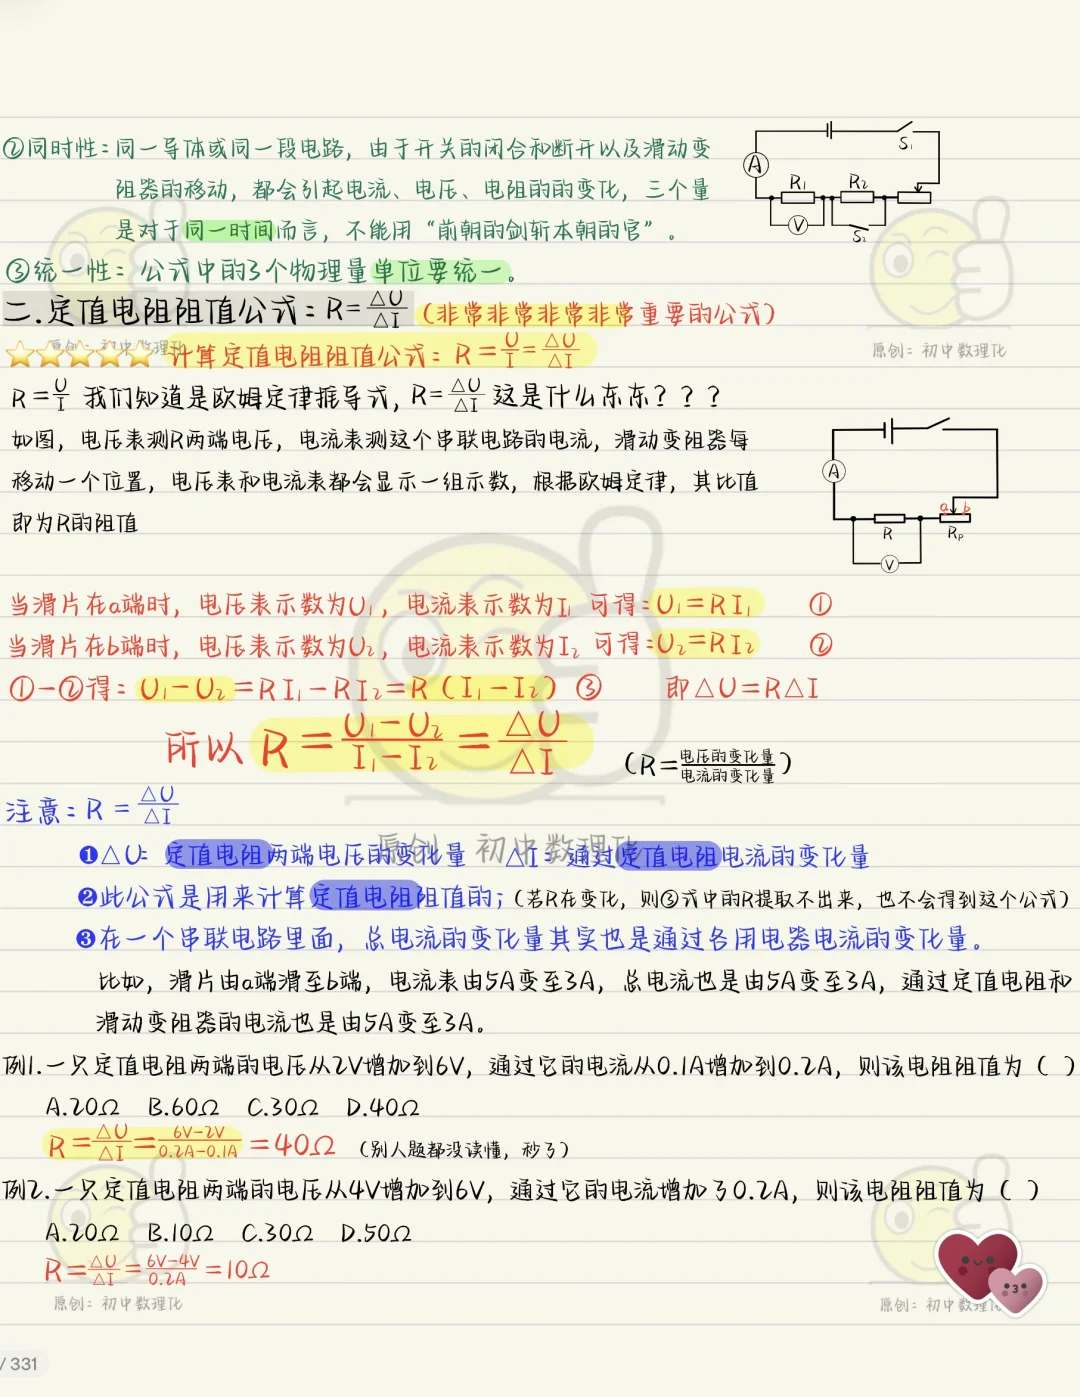 ②同时性：同一导体或同一段电路，由于开关的闭合和断开以及滑动变
阻器的移动，都会引起电流、电压、电阻的的变化，三个量
是对于同一时间而言，不能用“前朝的剑斩本朝的官”。
A S₁ R₁ R₂ V S₂
③统一性：公式中的3个物理量单位要统一。
二.定值电阻阻值公式：R=△U/△I（非常非常非常非常重要的公式）
原创：初中数理化
计算定值电阻阻值公式：R=U/I=△U/△I
原创：初中数理化
R=U/I 我们知道是欧姆定律推导式，R=△U/△I 这是什么东东？？？
如图，电压表测R两端电压，电流表测这个串联电路的电流，滑动变阻器每
移动一个位置，电压表和电流表都会显示一组示数，根据欧姆定律，其比值
即为R的阻值
A a b R Rₚ V
当滑片在a端时，电压表示数为U₁，电流表示数为I₁ 可得：U₁=RI₁ ①
当滑片在b端时，电压表示数为U₂，电流表示数为I₂ 可得：U₂=RI₂ ②
①-②得：U₁-U₂=RI₁-RI₂=R（I₁-I₂）③ 即△U=R△I
所以 R=U₁-U₂/I₁-I₂=△U/△I （R=电压的变化量/电流的变化量）
注意：R=△U/△I
原创：初中数理化
❶△U：定值电阻两端电压的变化量 △I：通过定值电阻电流的变化量
❷此公式是用来计算定值电阻阻值的；（若R在变化，则③式中的R提取不出来，也不会得到这个公式）
❸在一个串联电路里面，总电流的变化量其实也是通过各用电器电流的变化量。
比如，滑片由a端滑至b端，电流表由5A变至3A，总电流也是由5A变至3A，通过定值电阻和
滑动变阻器的电流也是由5A变至3A。
例1.一只定值电阻两端的电压从2V增加到6V，通过它的电流从0.1A增加到0.2A，则该电阻阻值为（ ）
A.20Ω B.60Ω C.30Ω D.40Ω
R=△U/△I=6V-2V/0.2A-0.1A=40Ω （别人题都没读懂，秒了）
例2.一只定值电阻两端的电压从4V增加到6V，通过它的电流增加了0.2A，则该电阻阻值为（ ）
A.20Ω B.10Ω C.30Ω D.50Ω
R=△U/△I=6V-4V/0.2A=10Ω
原创：初中数理化
原创：初中数理化
/ 331